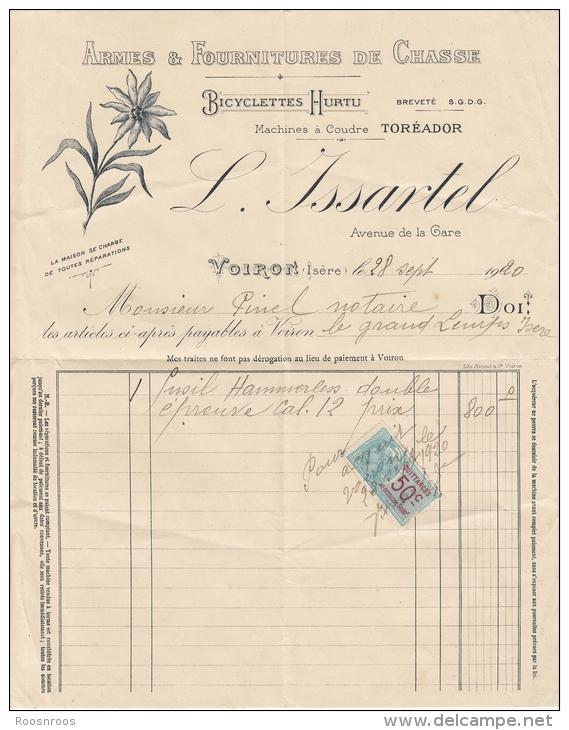 ARMES & FOURNITURES DE CHASSE
BICYCLETTES HURTU
BREVETÉ S.G.D.G.
Machines à Coudre TORÉADOR
L. Issartel
Avenue de la Gare
LA MAISON SE CHARGE
DE TOUTES RÉPARATIONS
VOIRON (Isère) le 28 sept 1920
Monsieur Pinel notaire DOIT
les articles ci-après payables à Voiron le grand Lemps Isère
Mes traites ne font pas dérogation au lieu de paiement à Voiron
N.-B. — Les réparations et fournitures se paient comptant. — Toute machine vendue à terme est considérée en location
jusqu'au dernier paiement; à défaut de paiement aux dates convenues, elle sera retirée immédiatement; toutes les sommes
perçues me resteront comme indemnité de location et d'usure.
1 Fusil Hammerless double
épreuve Cal. 12 prix 800
pour acquit le
1920
QUITTANCES
50c
L'acquéreur ne pourra se dessaisir de la machine avant complet paiement, sans s'exposer aux poursuites prévues par la loi.
Roosnroos
delcampe.net